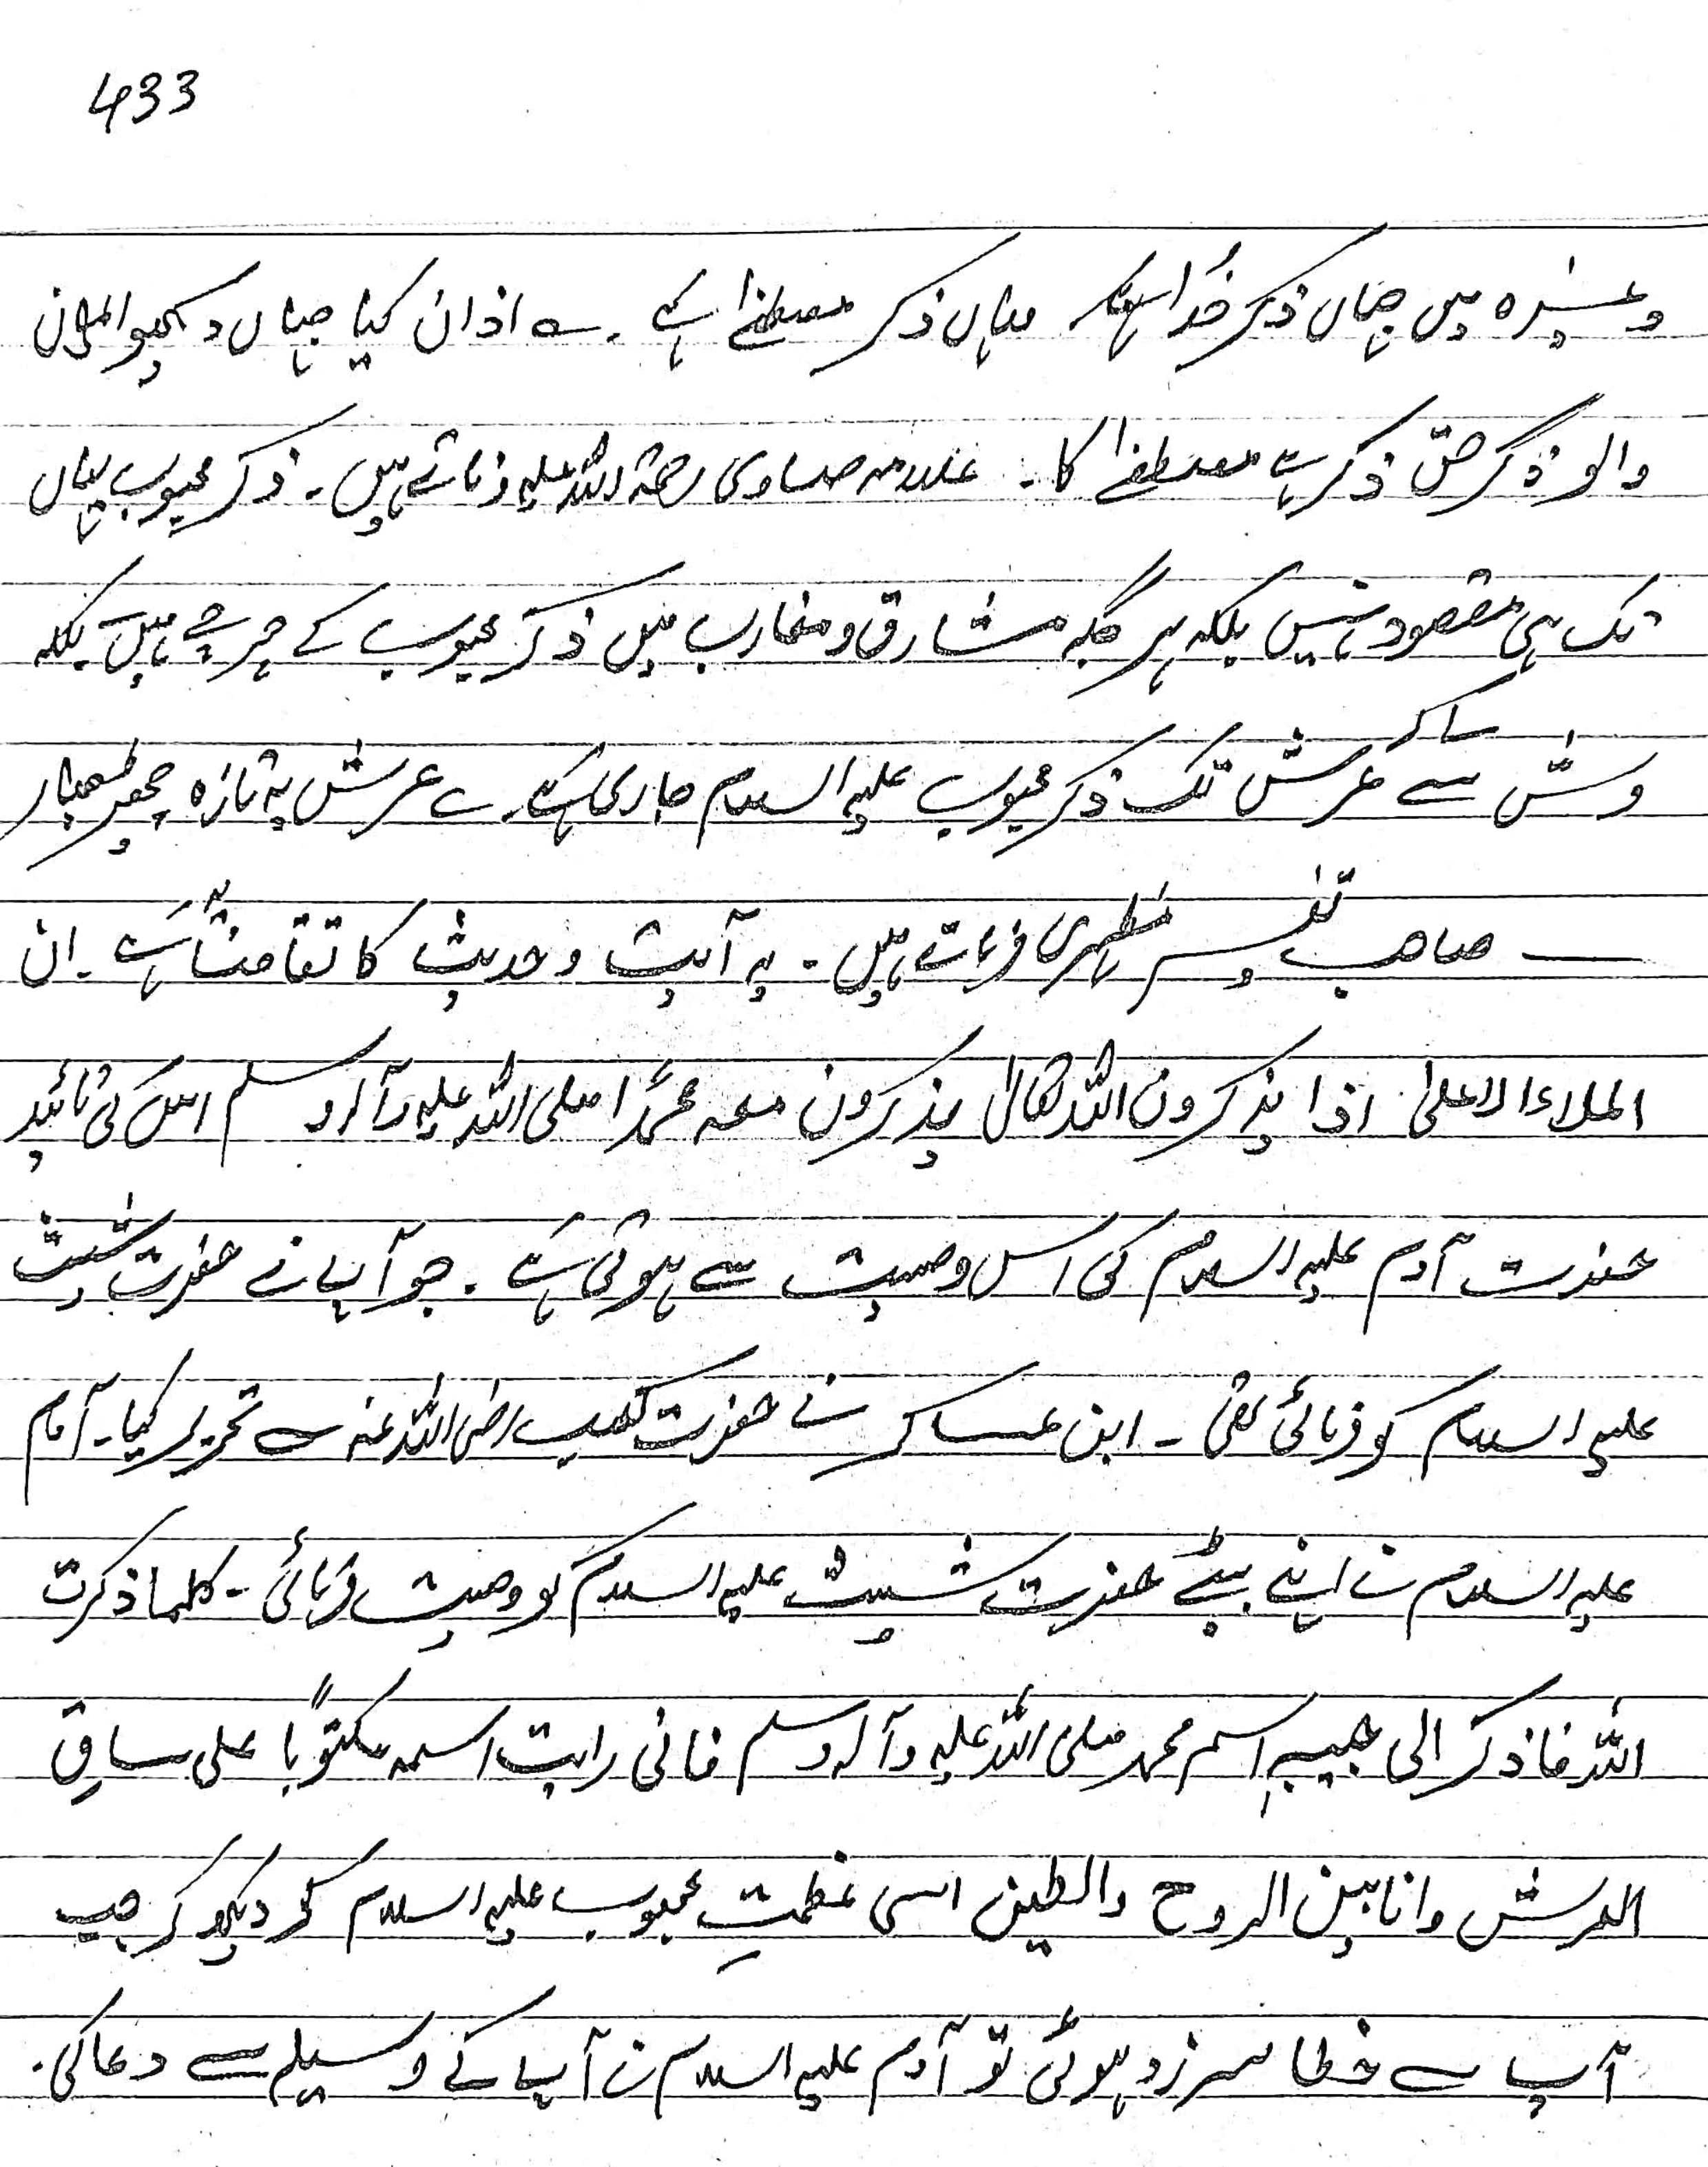 433
وغیرہ میں جہاں ذکر خُدا ہے وہاں ذکر مصطفےٰ ہے ۔ ؎ اذان کیا جہاں دیکھو ایمان
والو ذکر حق ذکر ہے مصطفےٰ کا ۔ علامہ صاوی رحمۃ اللہ علیہ فرماتے ہیں ۔ ذکر محبوب یہاں
تک ہی مقصود نہیں بلکہ ہر جگہ مشارق و مغارب میں ذکر محبوب کے چرچے ہیں ۔ بلکہ
فرش سے لے کر عرش تک ذکر محبوب علیہ السلام جاری ہے ۔ ؎ عرش پہ تازہ چھیڑ چھاڑ
صاحب تفسیر مظہری فرماتے ہیں ۔ یہ آیت و حدیث کا تقاضا ہے ۔ ان
الملاء الاعلیٰ اذا یذکرون اللہ تعالیٰ یذکرون معہ محمدًا صلی اللہ علیہ وآلہ وسلم اس کی تائید
حضرت آدم علیہ السلام کی اس وصیت سے ہوتی ہے ۔ جو آپ نے حضرت شیث
علیہ السلام کو فرمائی تھی ۔ ابن عساکر نے حضرت کعب رضی اللہ عنہ سے تحریر کیا ۔ آدم
علیہ السلام نے اپنے بیٹے حضرت شیث علیہ السلام کو وصیت فرمائی ۔ کلما ذکرت
اللہ فاذکر الی جنبہِ اسم محمد صلی اللہ علیہ وآلہ وسلم فانی رایت اسمہ مکتوبًا علی ساق
العرش وانا بین الروح والطین اسی عظمتِ محبوب علیہ السلام کو دیکھ کر جب
آپ سے خطا سرزد ہوئی تو آدم علیہ السلام نے آپ کے وسیلہ سے دعا کی ۔